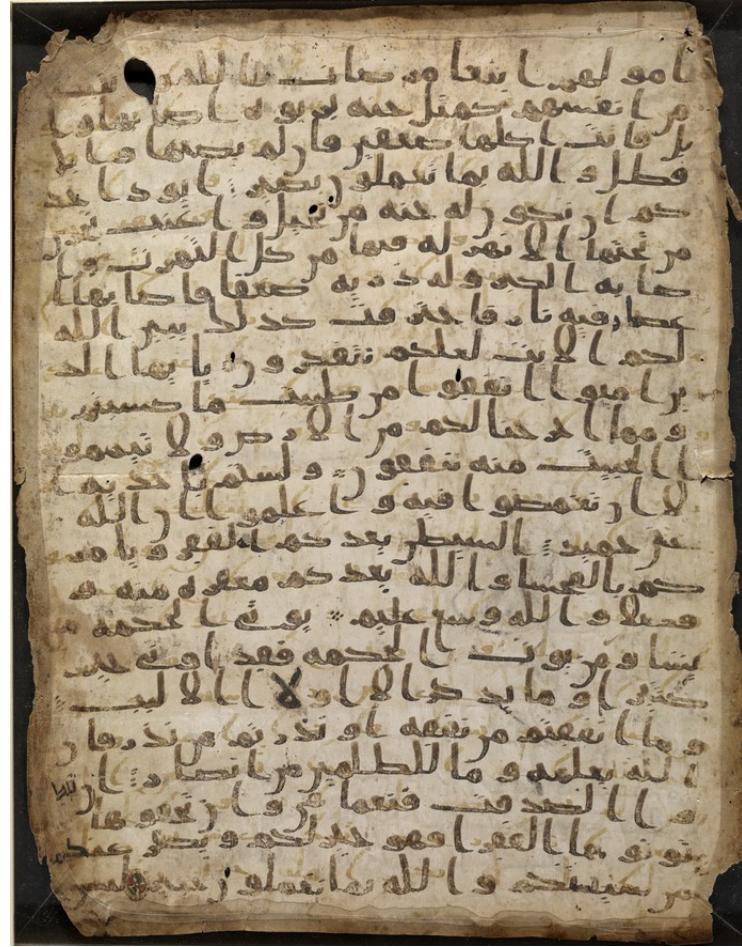 امولهم ابتغا مرضات الله وتثبيتا
من انفسهم كمثل جنه بربوه اصابها وا
بل فاتت اكلها ضعفين فان لم يصبها وابل
فطل والله بما تعملون بصير ايود احد
كم ان تكون له جنه من نخيل واعنب تجري
من تحتها الانهر له فيها من كل الثمرت وا
صابه الكبر وله ذريه ضعفا فاصابها ا
عصار فيه نار فاحترقت كذلك يبين الله
لكم الايت لعلكم تتفكرون يايها الذ
ين امنوا انفقوا من طيبت ما كسبتم
ومما اخرجنا لكم من الارض ولا تيممو
ا الخبيث منه تنفقون ولستم باخذيه ا
لا ان تغمضوا فيه واعلموا ان الله
غني حميد الشيطن يعدكم الفقر ويامر
كم بالفحشا والله يعدكم مغفره منه و
فضلا والله وسع عليم يوتي الحكمه من
يشا ومن يوت الحكمه فقد اوتي خيرا
كثيرا وما يذكر الا اولوا الالبب
وما انفقتم من نفقه او نذرتم من نذر فان
الله يعلمه وما للظلمين من انصار ان تبد
وا الصدقت فنعما هي وان تخفوها
وتوتوها الفقرا فهو خير لكم ويكفر عنكم
من سيتكم والله بما تعملون خبير ليس